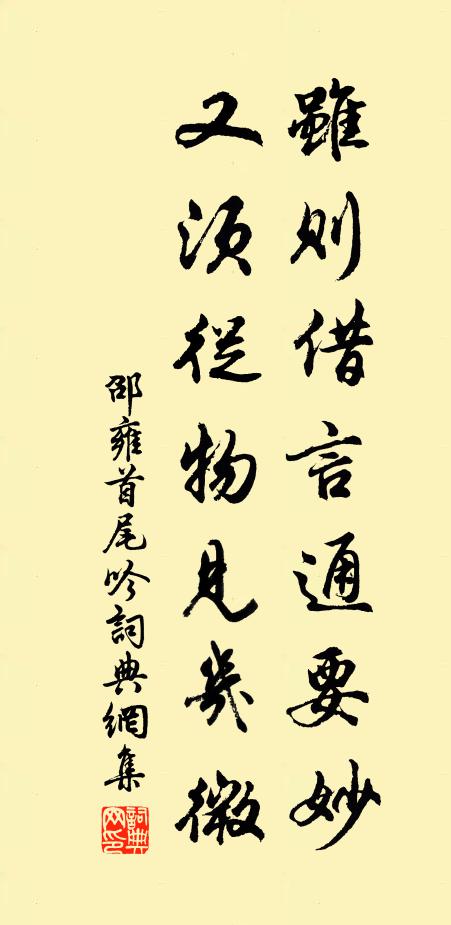 雖則借言通要妙
又須從物見幾微
邵雍首尾吟詞典網集
詞典網印